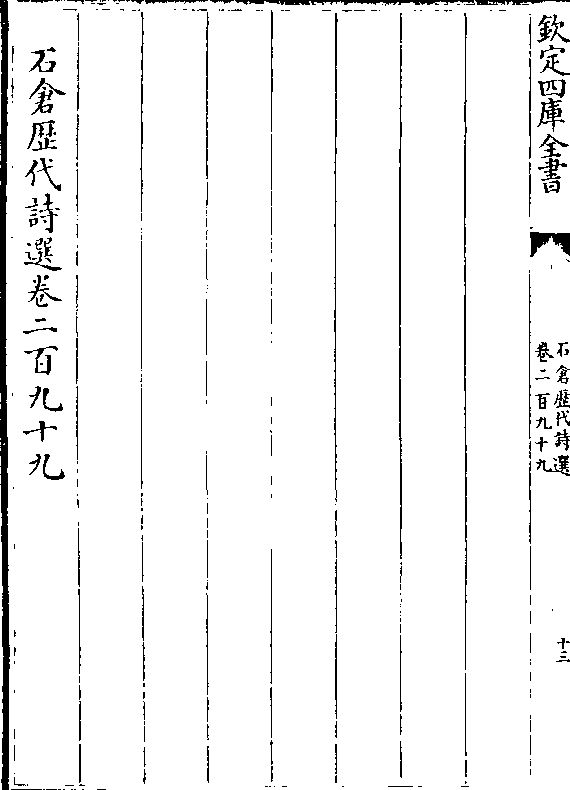 欽定四庫全書
石倉歴代詩選
卷二百九十九
十三
石倉歴代詩選卷二百九十九